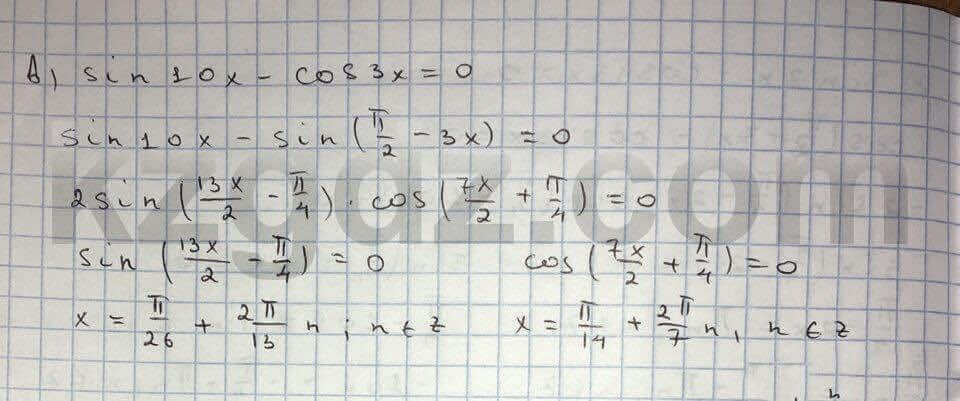 A) sin10x - cos3x = 0
sin10x - sin(π/2 - 3x) = 0
2sin(13x/2 - π/4) · cos(7x/2 + π/4) = 0
sin(13x/2 - π/4) = 0 cos(7x/2 + π/4) = 0
x = π/26 + 2π/13 n ; n ∈ z x = π/14 + 2π/7 n, n ∈ z
kzgdz.com